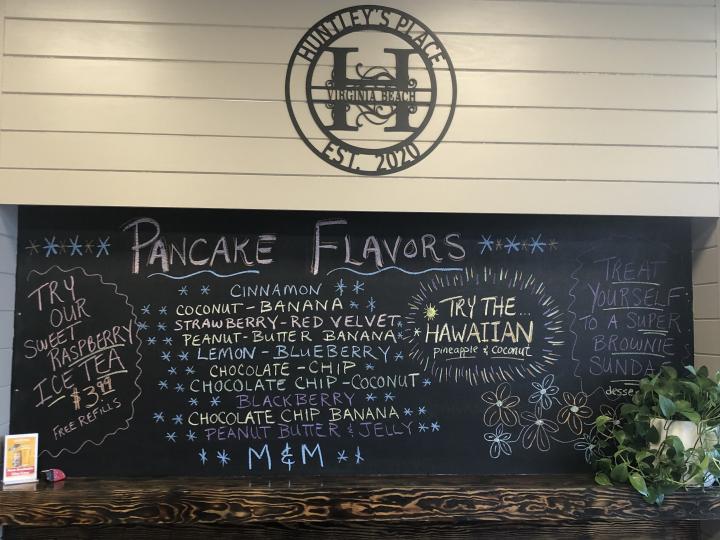 HUNTLEY'S PLACE
H
VIRGINIA BEACH
EST. 2020
PANCAKE FLAVORS
CINNAMON
COCONUT-BANANA
STRAWBERRY-RED VELVET
PEANUT-BUTTER BANANA
LEMON-BLUEBERRY
CHOCOLATE-CHIP
CHOCOLATE CHIP-COCONUT
BLACKBERRY
CHOCOLATE CHIP BANANA
PEANUT BUTTER & JELLY
M & M
TRY
OUR
SWEET
RASPBERRY
ICE TEA
$3.99
FREE REFILLS
TRY THE...
HAWAIIAN
pineapple & coconut
TREAT
YOURSELF
TO A SUPER
BROWNIE